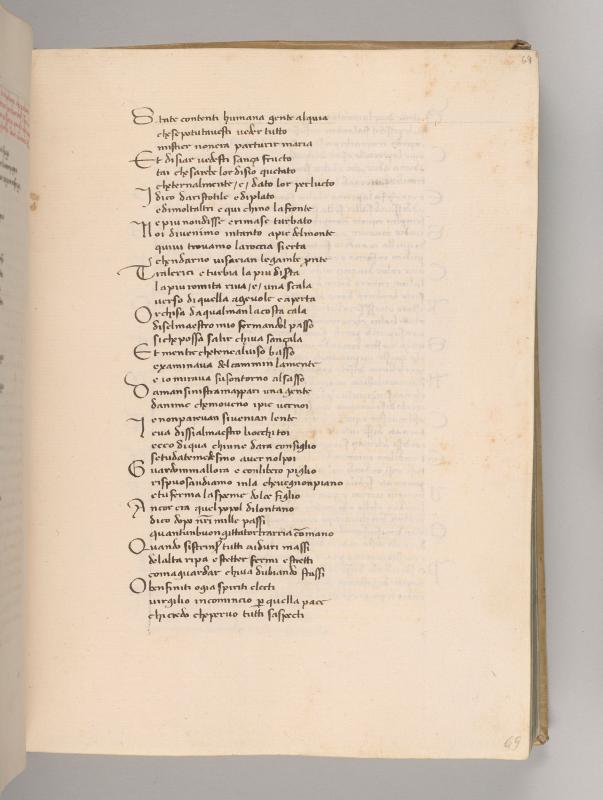 64
State contenti humana gente alquia
chese potutavesti veder tutto
mistier nonera parturir maria
Et disiar vedesti sança fructo
tai che sarebe lor disio quetato
cheternalmente /e/ dato lor perlucto
I dico daristotile ediplato
edimoltaltri e qui chino lafronte
e piu nondisse erimase turbato
Noi divenimo intanto apie delmonte
quivi trovamo laroccia sierta
chendarno visarian legambe pronte
Tralerici e turbia la piu diserta
la piu romita riva /e/ una scala
verso di quella agevole e aperta
Or chisa daqualman lacosta cala
disselmaestro mio fermandol passo
si che possa salir chiva sançala
Et mentre chetenealviso basso
examinava del cammin lamente
e io mirava susontorno alsasso
Da man sinistra mappari una gente
danime chemovieno ipie vernoi
e nonparevan sivenian lente
Leva dissial maestro liocchi toi
ecco diqua chinne dara consiglio
se tu datemedesmo aver nolpoi
Guardommallora e conlibero piglio
rispuosandiamo inla chevegnonpiano
etu ferma laspeme dolce figlio
Ancor era quel popol dilontano
dico dopo nr̄i mille passi
quantunbuongittatortrarria cōmano
Quando sistrinser tutti aiduri massi
delalta ripa estetter fermi estretti
comaguardar chiva dubiando stassi
O benfiniti ogia spiriti electi
virgilio incomincio p quella pace
chicredo cheper voi tutti saspecti
69